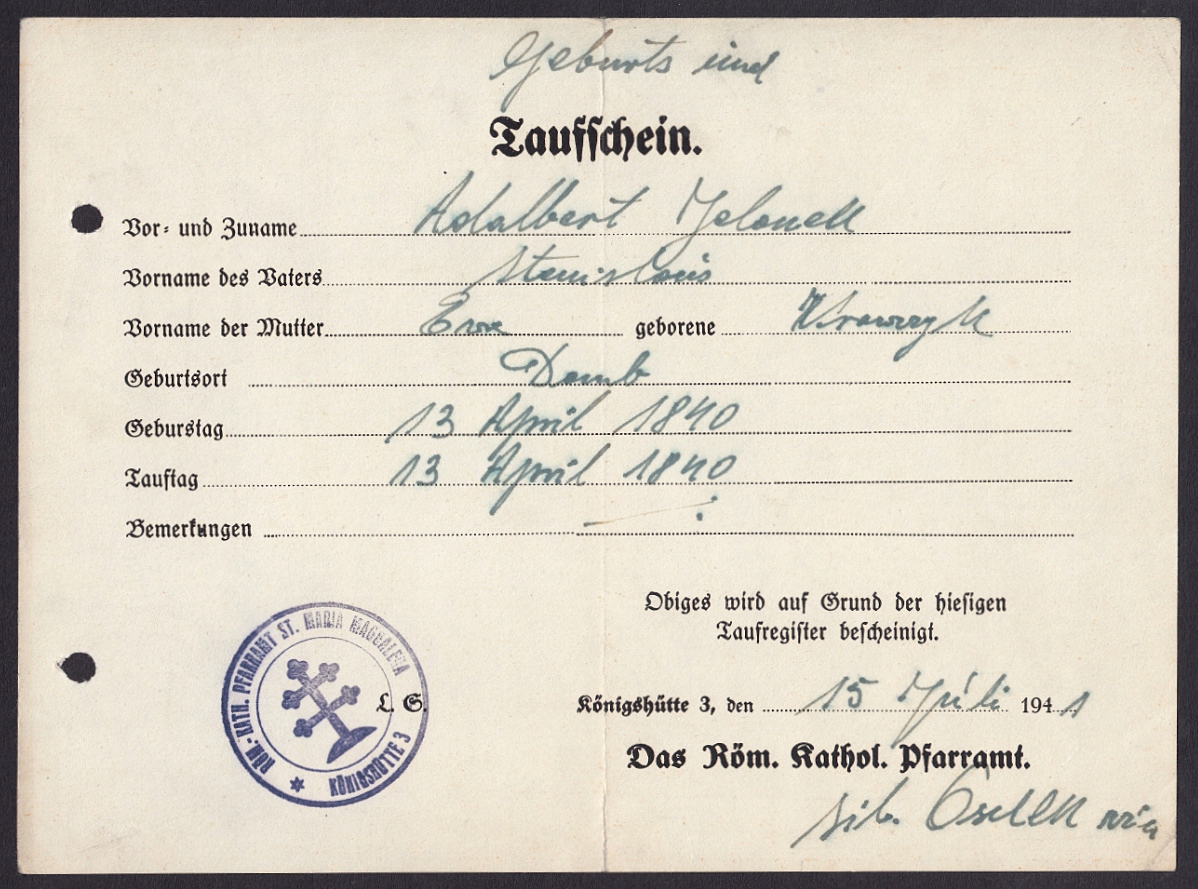 Geburts und
Taufschein.
Vor- und Zuname Adalbert Jelonek
Vorname des Vaters Stanislaus
Vorname der Mutter Ewa geborene Krawczyk
Geburtsort Domb
Geburstag 13 April 1840
Tauftag 13 April 1840
Bemerkungen
Obiges wird auf Grund der hiesigen
Taufregister bescheinigt.
RÖM.-KATH. PFARRAMT ST. MARIA MAGDALENA
KÖNIGSHÜTTE 3
L. S.
Königshütte 3, den 15 Juli 1941
Das Röm. Kathol. Pfarramt.